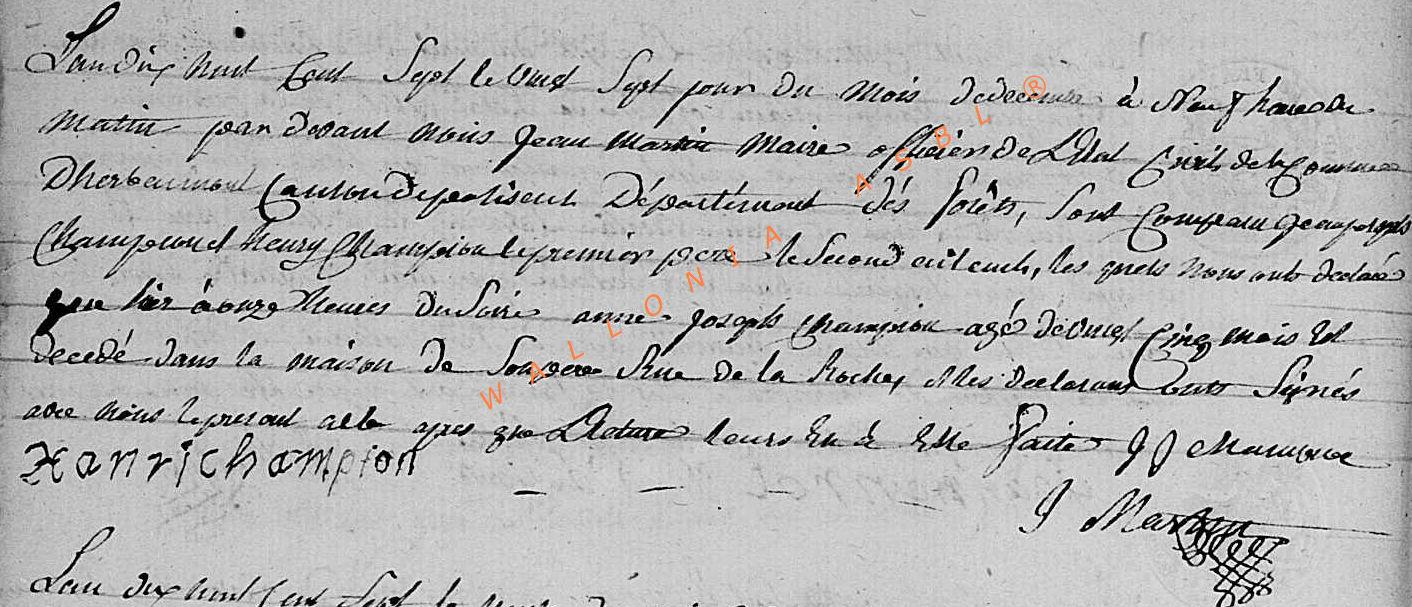 L'an dix huit Cent Sept le vingt Sept jour du mois de decembre à Neuf heures du
matin par devant nous Jean Martin Maire officier de L'Etat Civil de la Commune
D'herbeumont Canton de paliseul Département dés forêts, sont Comparu Jean joseph
Champion et henry Champion le premier pere le second, les quels nous ont declaré
que hier à onze heures du soire anne joseph Champion agé de vingt Cinq mois est
decedé dans la maison de Son pere Rue de la Roche, Les declarant onts signés
avec nous le present acte apres que Lecture leurs En à Etté faite J J
Hanri champion
J Martin
L'an dix huit Cent Sept le
WALLONIA ASBL ®